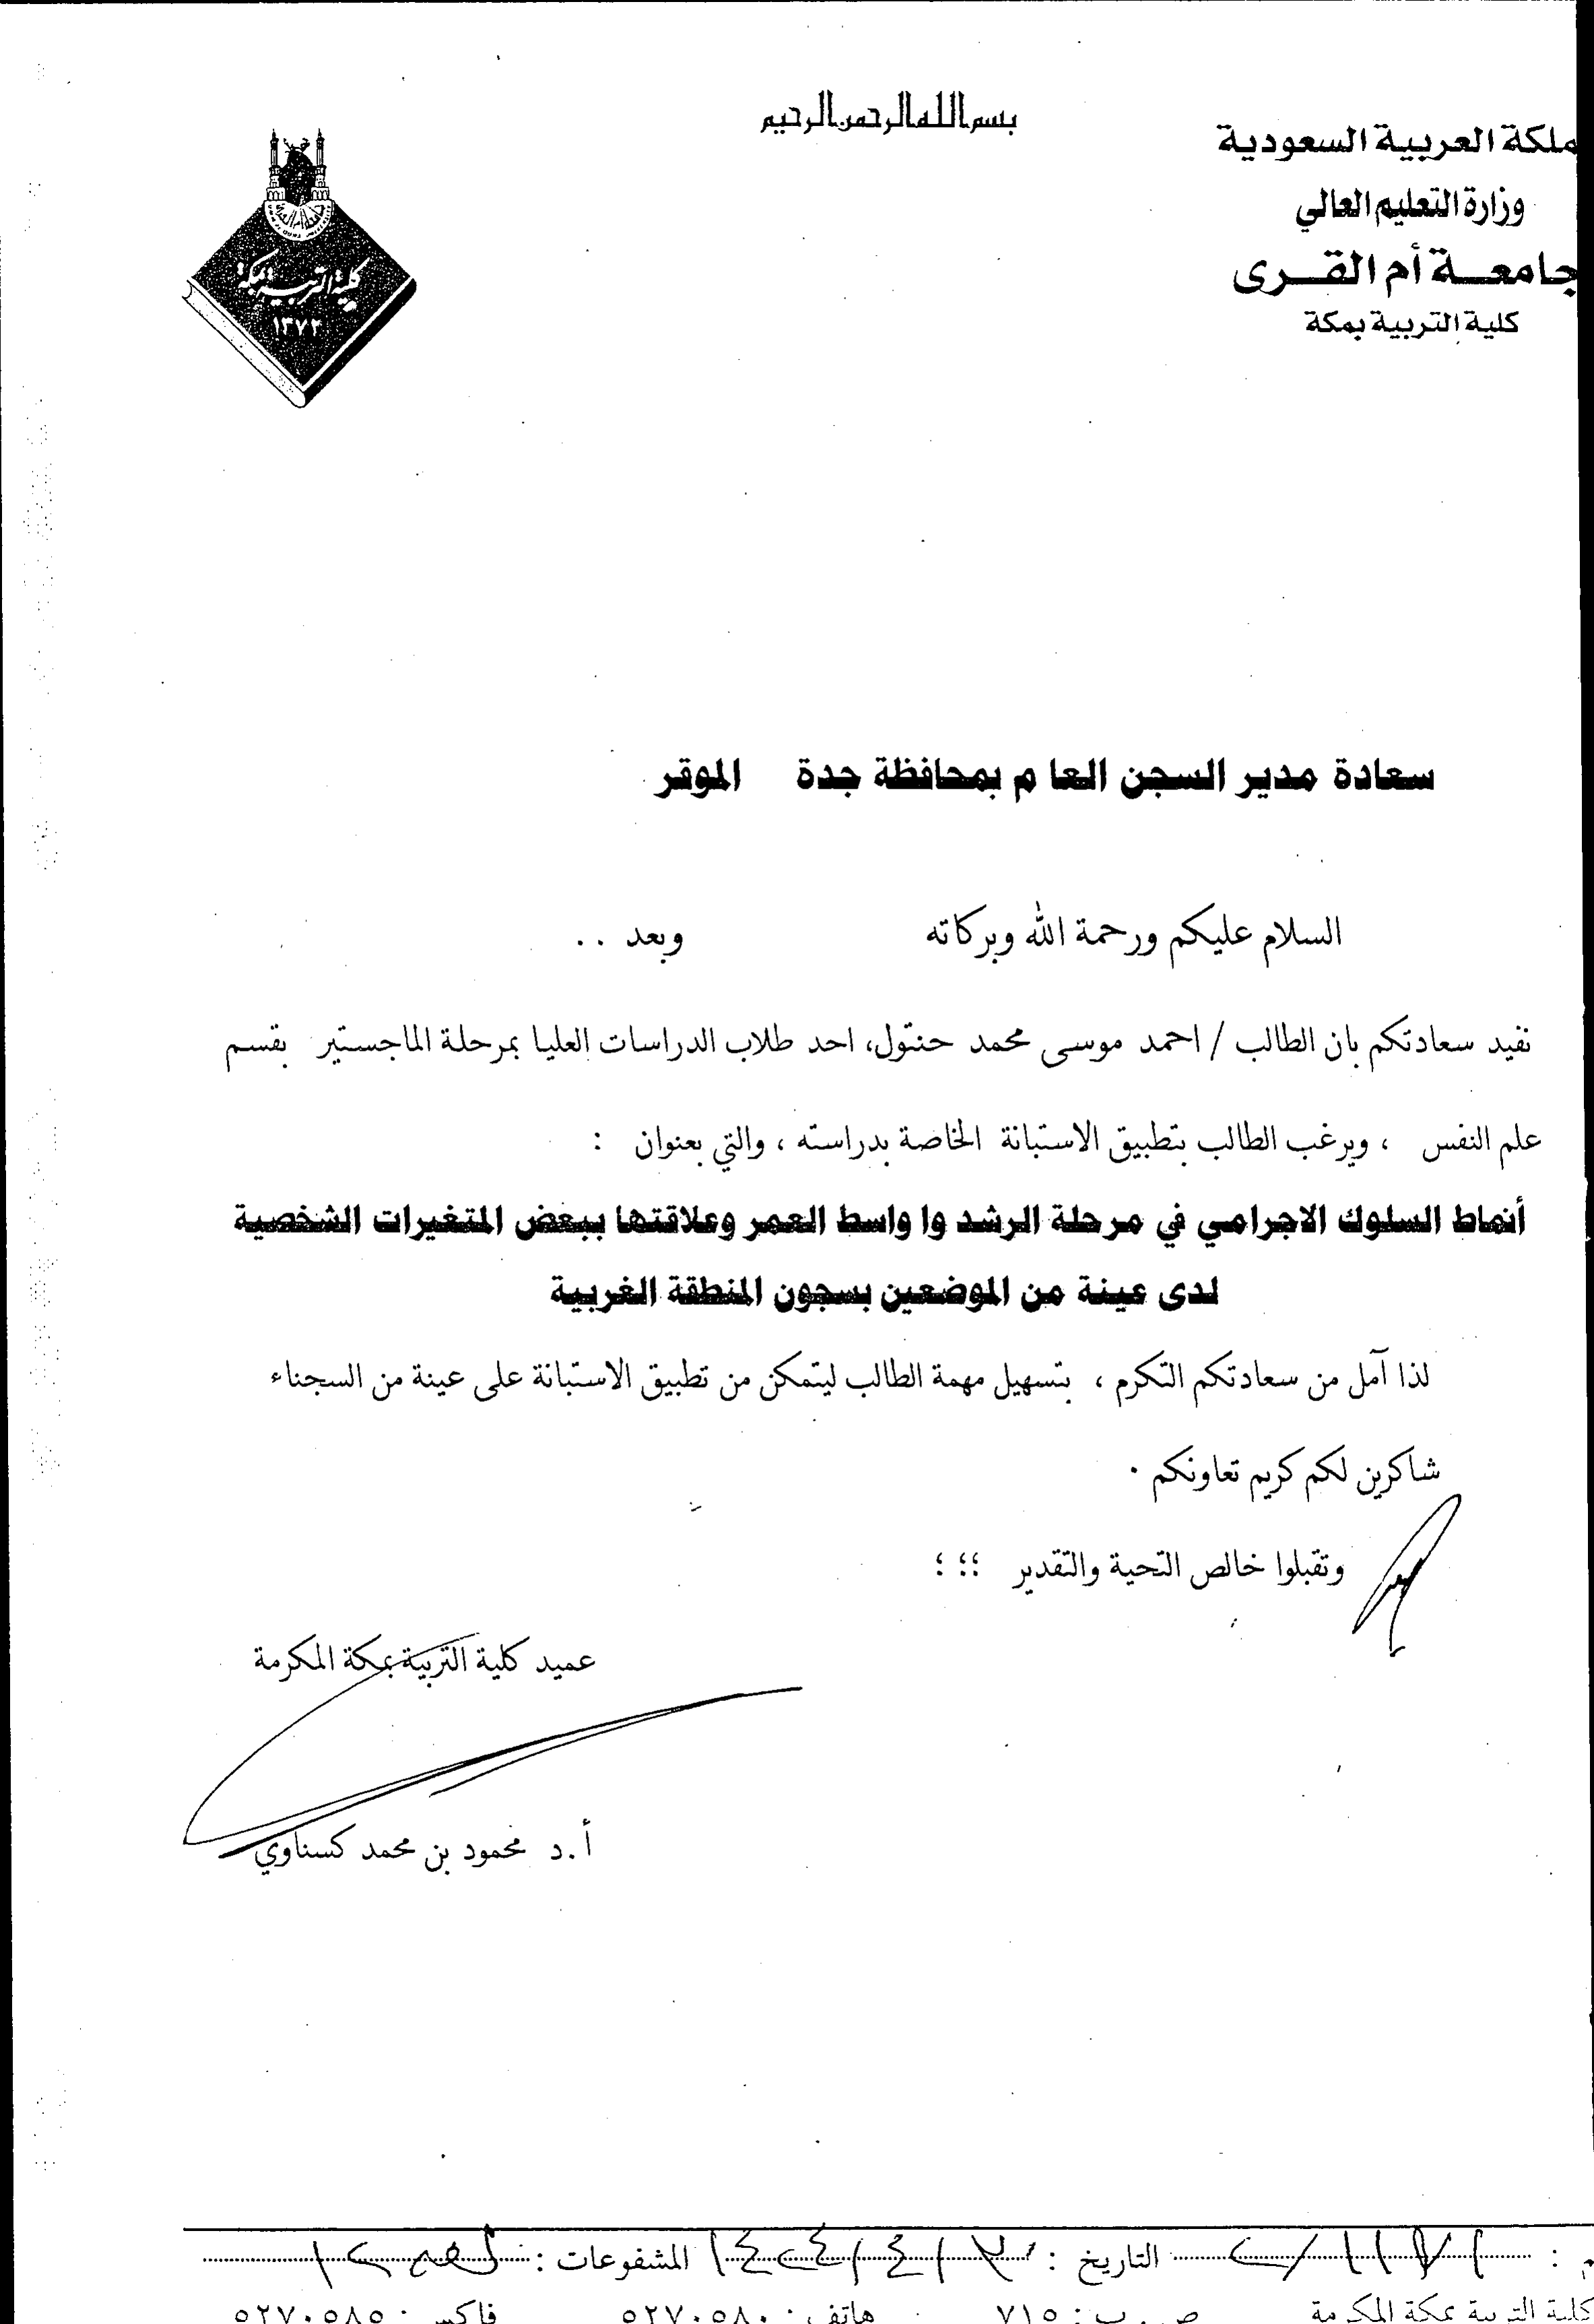 بسم الله الرحمن الرحيم
ملكة العربية السعودية
وزارة التعليم العالي
جامعة أم القرى
كلية التربية بمكة
كلية التربية بمكة
١٣٧٢
سعادة مدير السجن العا م بمحافظة جدة الموقر
السلام عليكم ورحمة الله وبركاته وبعد ..
نفيد سعادتكم بان الطالب / احمد موسى محمد حنتول، احد طلاب الدراسات العليا بمرحلة الماجستير بقسم
علم النفس ، ويرغب الطالب بتطبيق الاستبانة الخاصة بدراسته ، والتي بعنوان :
أنماط السلوك الاجرامي في مرحلة الرشد وا واسط العمر وعلاقتها ببعض المتغيرات الشخصية
لدى عينة من الموضعين بسجون المنطقة الغربية
لذا آمل من سعادتكم التكرم ، بتسهيل مهمة الطالب ليتمكن من تطبيق الاستبانة على عينة من السجناء
شاكرين لكم كريم تعاونكم .
وتقبلوا خالص التحية والتقدير ؛؛ ؛
عميد كلية التربية بمكة المكرمة
أ.د محمود بن محمد كسناوي
م : التاريخ : المشفوعات :
كلية التربية بمكة المكرمة ص . ب : ٧١٥ هاتف : ٥٢٧٠٥٨٠ فاكس : ٥٢٧٠٥٨٥